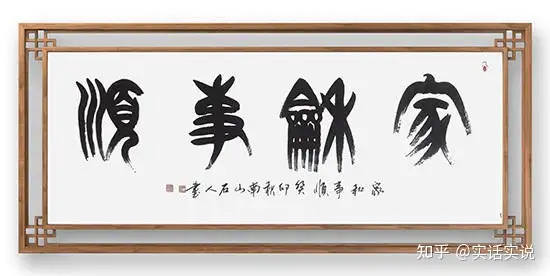 家龢事順
家和事順癸卯秋南山石人書
知乎 @实话实说